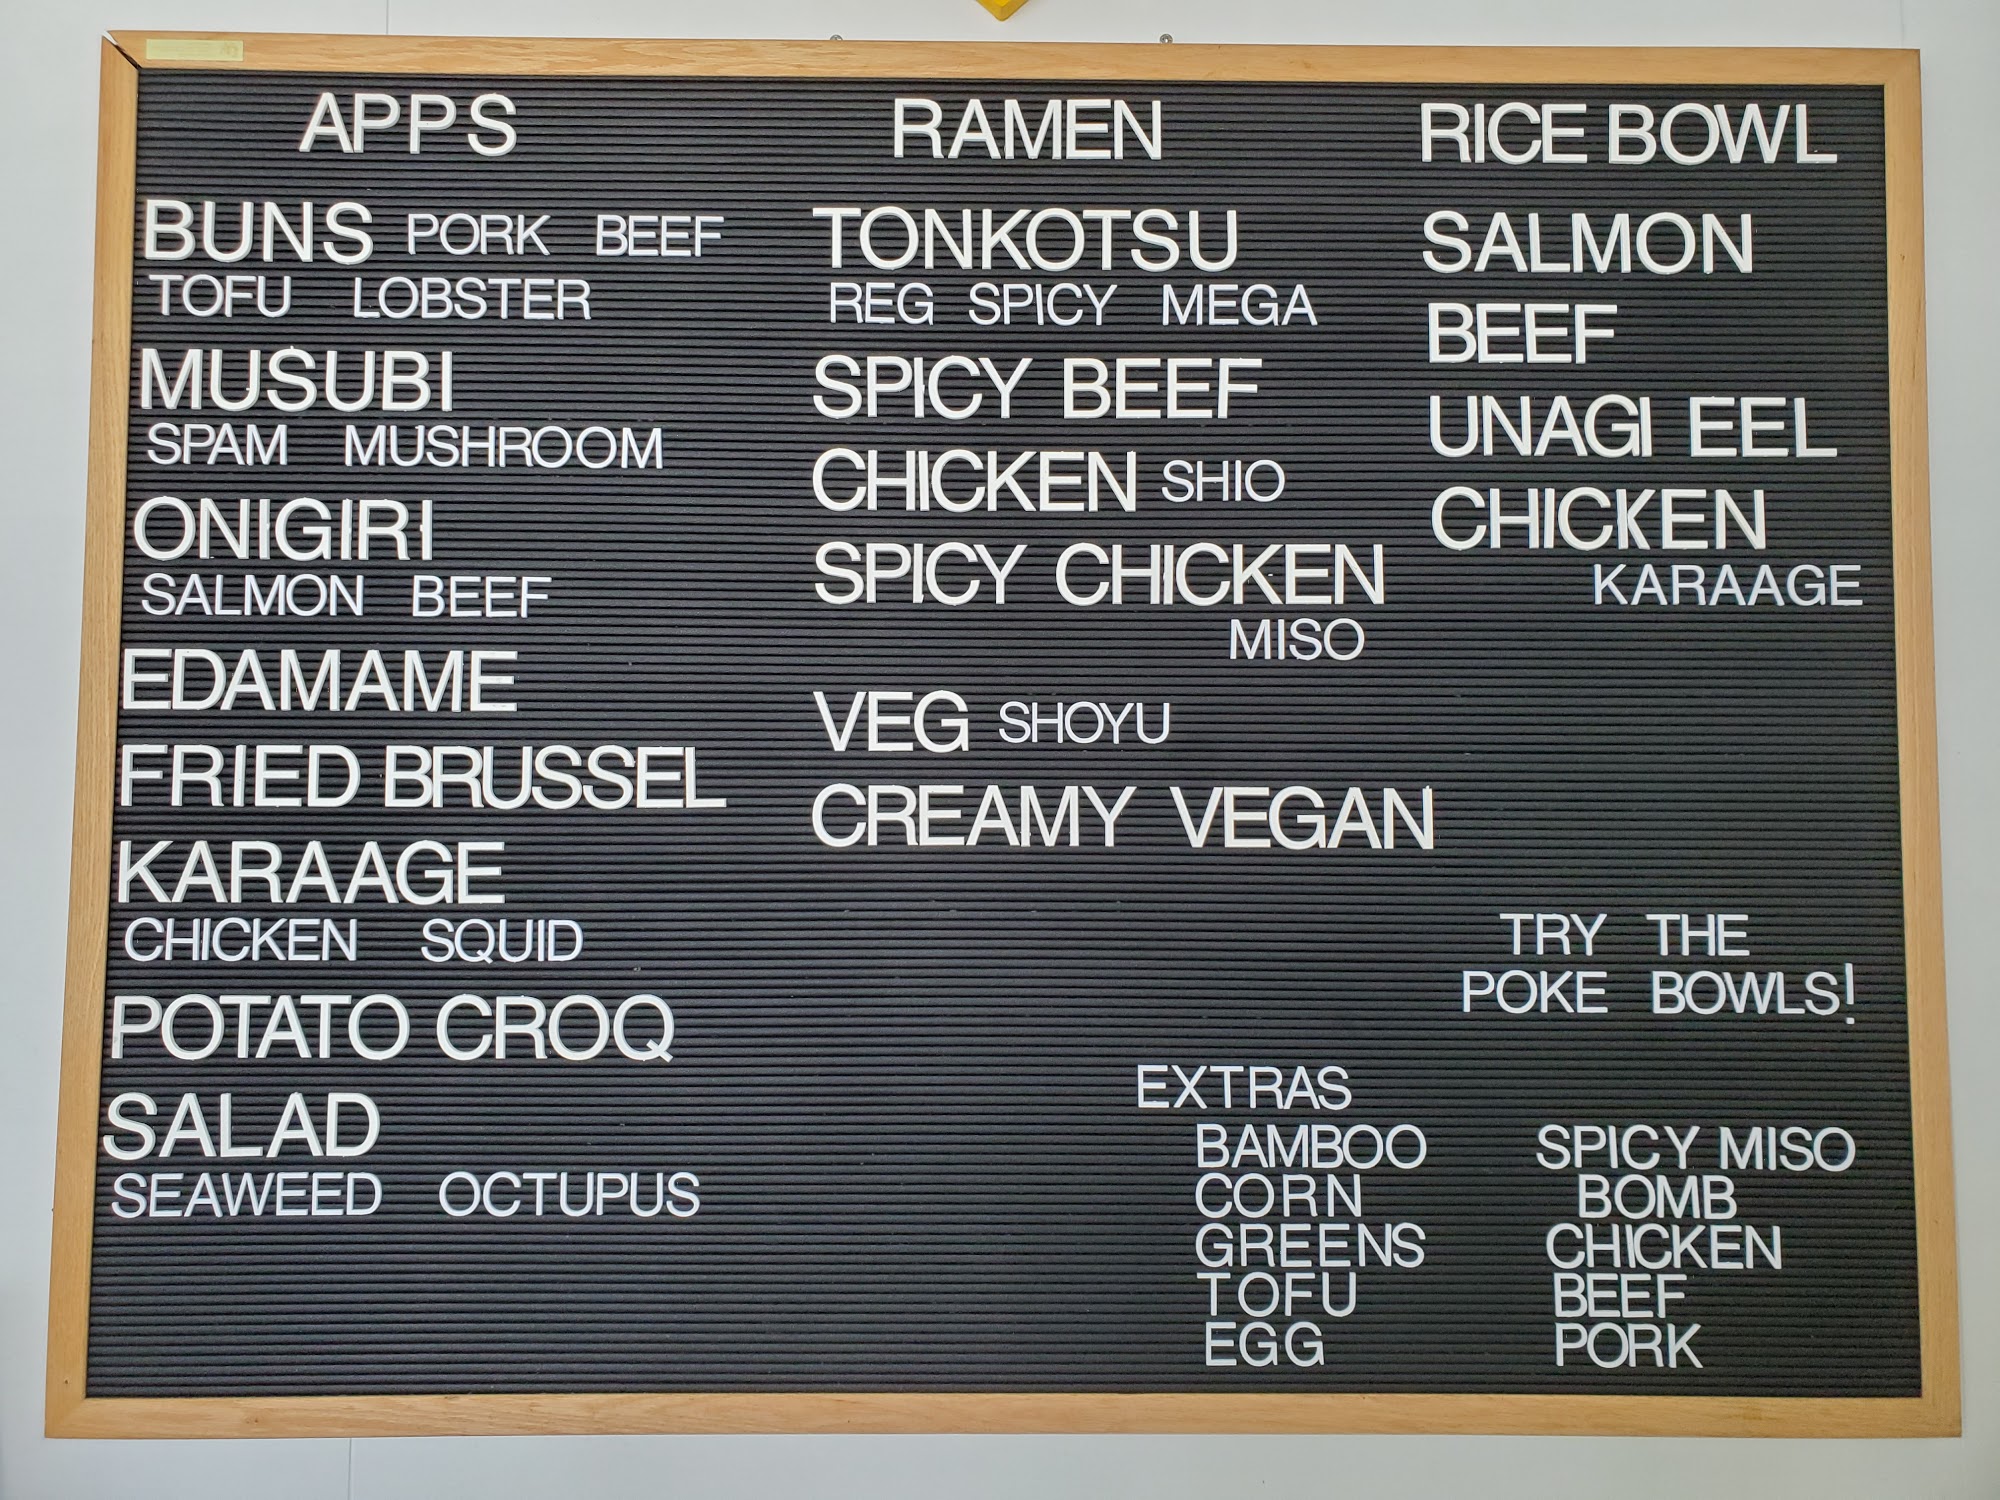 APPS
BUNS PORK BEEF
TOFU LOBSTER
MUSUBI
SPAM MUSHROOM
ONIGIRI
SALMON BEEF
EDAMAME
FRIED BRUSSEL
KARAAGE
CHICKEN SQUID
POTATO CROQ
SALAD
SEAWEED OCTUPUS
RAMEN
TONKOTSU
REG SPICY MEGA
SPICY BEEF
CHICKEN SHIO
SPICY CHICKEN
MISO
VEG SHOYU
CREAMY VEGAN
RICE BOWL
SALMON
BEEF
UNAGI EEL
CHICKEN
KARAAGE
TRY THE
POKE BOWLS!
EXTRAS
BAMBOO
CORN
GREENS
TOFU
EGG
SPICY MISO
BOMB
CHICKEN
BEEF
PORK